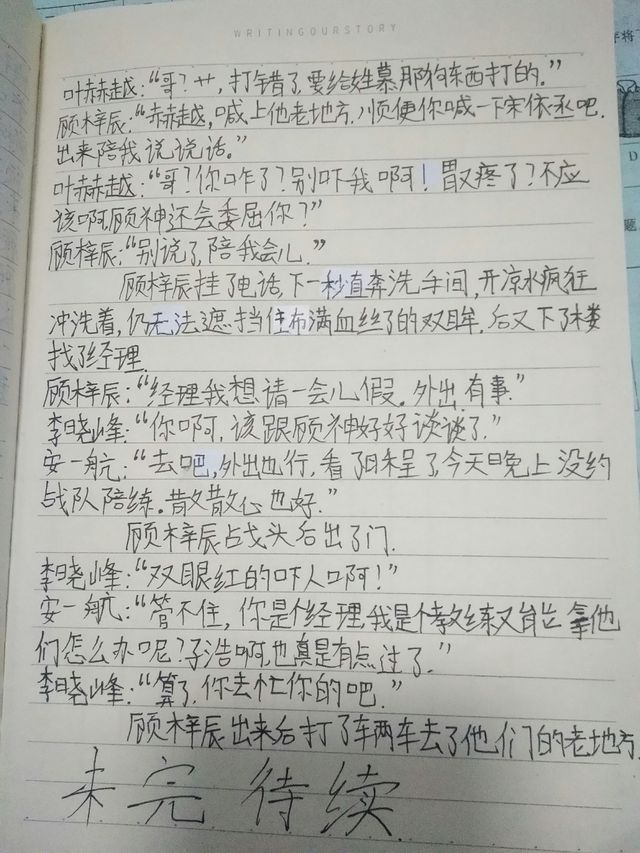 WRITINGOURSTORY
叶赫越:“哥?艹,打错了,要给姓慕那狗东西打的.”
顾梓辰:“赤赫越,喊上他老地方.顺便你喊一下宋依丞吧.
出来陪我说说话。”
叶赫越:“哥?你咋了?别吓我啊!胃又疼了?不应
该啊顾神还会委屈你?”
顾梓辰:“别说了,陪我会儿.”
顾梓辰挂了电话,下一秒直奔洗手间,开凉水疯狂
冲洗着,仍无法遮挡住布满血丝了的双眸,后又下了楼
找了经理.
顾梓辰:“经理我想请一会儿假。外出有事.”
李晓峰:“你啊,该跟顾神好好谈谈了.”
安一航:“去吧,外出也行,看了日程了,今天晚上没约
战队陪练。散散心也好.”
顾梓辰点头后出了门.
李晓峰:“双眼红的吓人啊!”
安一航:“管不住,你是个经理,我是个教练又能拿他
们怎么办呢?子浩啊,也真是有点过了.”
李晓峰:“算了,你去忙你的吧.”
顾梓辰出来后打了车两车去了他们的老地方.
未完待续
D
题